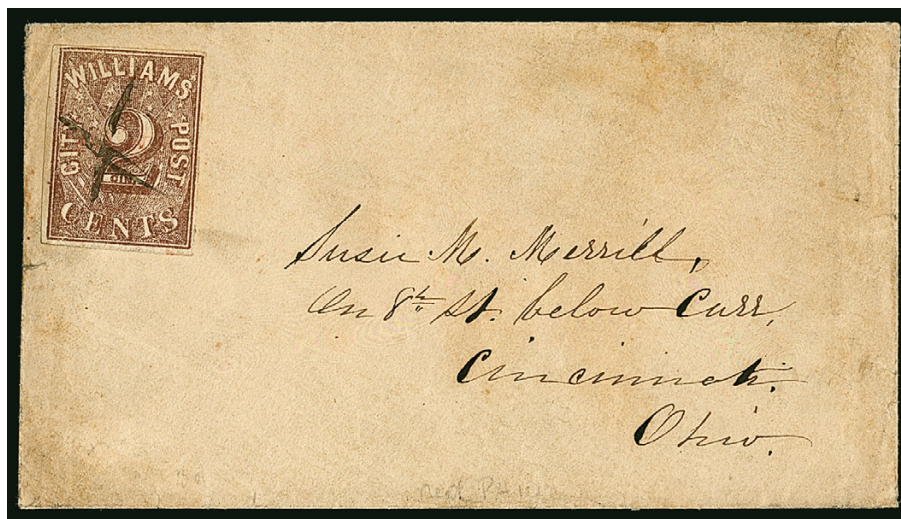 WILLIAMS
CITY POST
2
CIN.
CENTS
Susie M. Merrill,
On 8th St. below Carr,
Cincinnati.
Ohio.